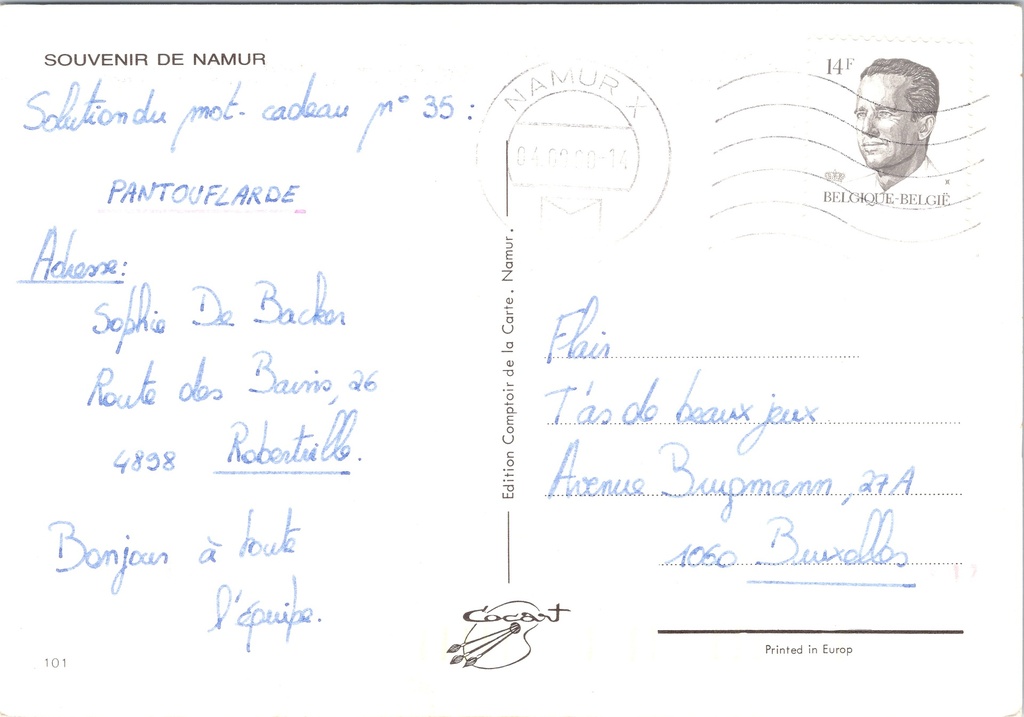 SOUVENIR DE NAMUR
Solution du mot-cadeau n° 35 :
PANTOUFLARDE
Adresse:
Sophie De Backer
Route des Bains, 26
4898 Robertville.
Bonjour à toute
l'équipe.
101
Edition Comptoir de la Carte. Namur.
Cocart
NAMUR X
14F
BELGIQUE-BELGIË
Flair
T'as de beaux jeux
Avenue Brugmann, 27A
1060 Bruxelles
Printed in Europ